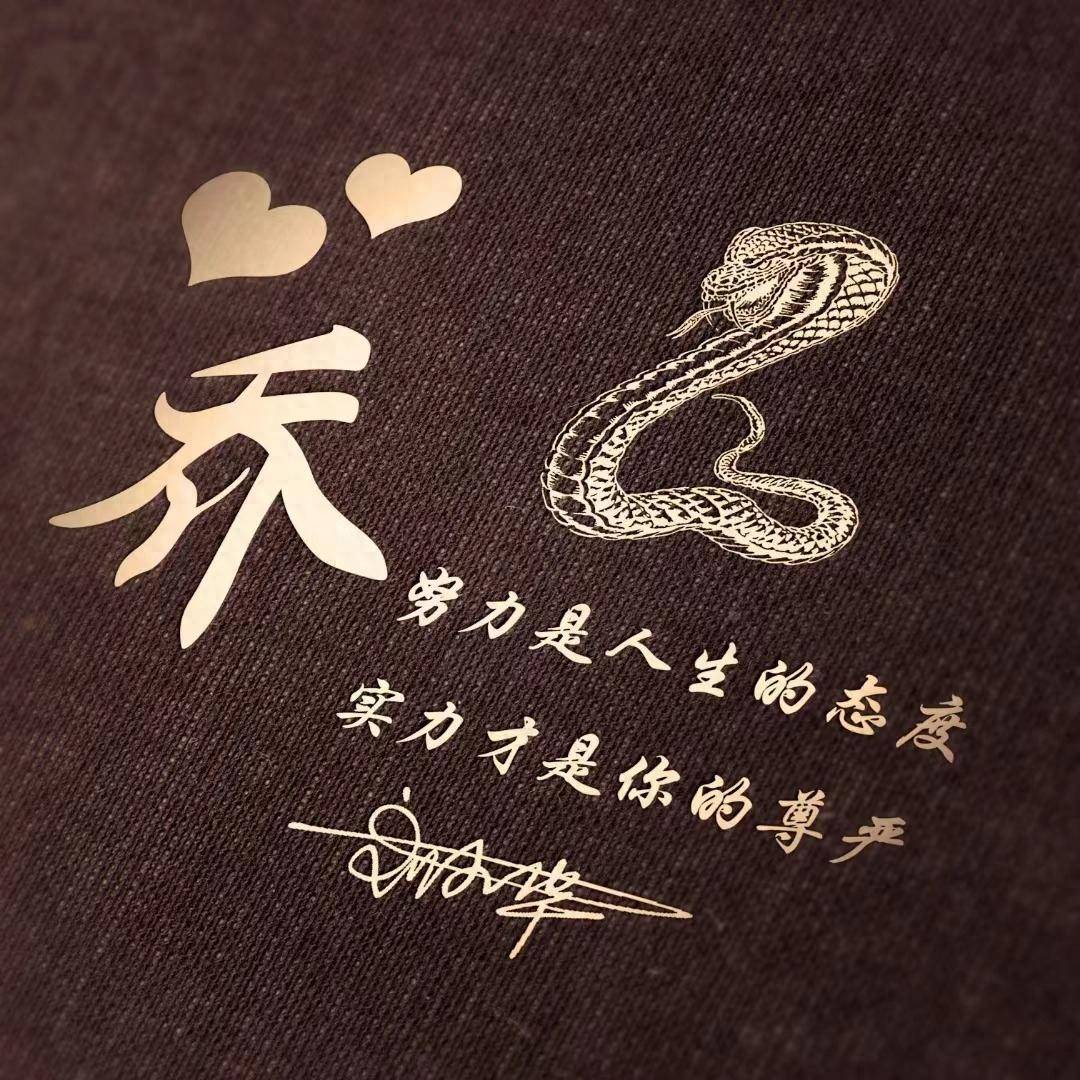 乔
努力是人生的态度
实力才是你的尊严